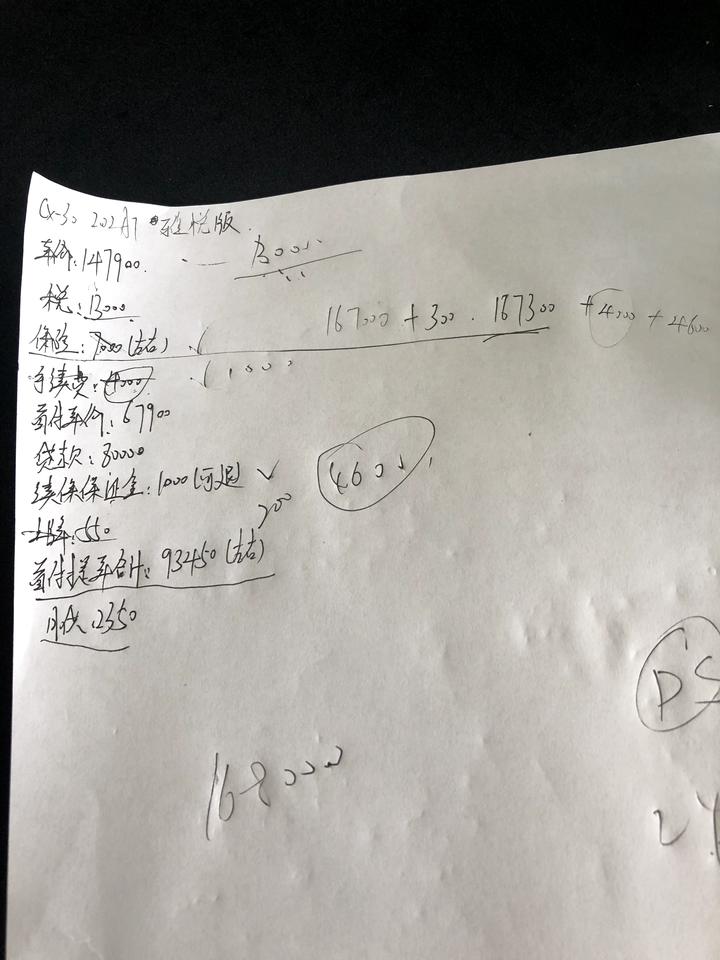 CX-30 202A7 雅悦版
车价:147900. — 13000
税:13000
167000 + 300 . 167300 + 4000 + 4600
保险:7000(左右) √
手续费:4000 √ 1000
首付车价:67900
贷款:80000
续保保证金:1000(可退) √
4600
上牌:550 200
首付提车合计:93450(左右)
月供:2350
DS
168000